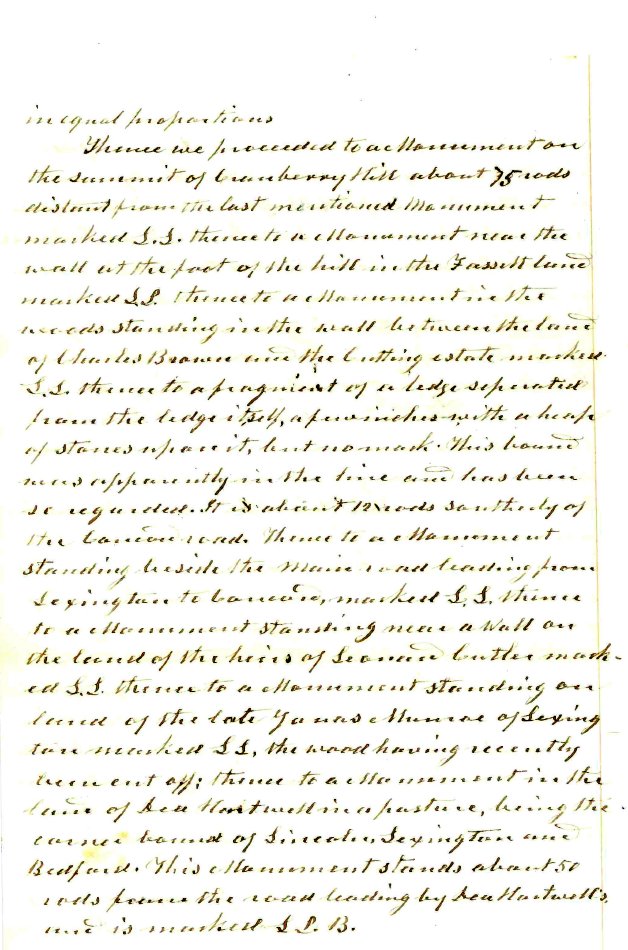 in equal proportions
Thence we proceeded to a Monument on
the summit of Cranberry Hill about 75 rods
distant from the last mentioned Monument
marked L.L. thence to a Monument near the
wall at the foot of the hill in the Fassett land
marked L.L. thence to a Monument in the
woods standing in the wall between the land
of Charles Brown and the Cutting estate marked
L.L. thence to a fragment of a ledge seperated
from the ledge itself, a few inches with a heap
of stones upon it, but no mark. This bound
was apparently in the line and has been
so regarded. It is about 12 rods southerly of
the Concord road. Thence to a Monument
standing beside the main road leading from
Lexington to Concord, marked L.L. thence
to a Monument standing near a wall on
the land of the heirs of Leonard Cutler mark-
ed L.L. thence to a Monument standing on
land of the late Jonas Munroe of Lexing
ton marked L L, the wood having recently
been cut off; thence to a Monument in the
land of Dea Hartwell in a pasture, being the
corner bound of Lincoln, Lexington and
Bedford. This Monument stands about 50
rods from the road leading by Dea Hartwell's
and is marked L L. B.